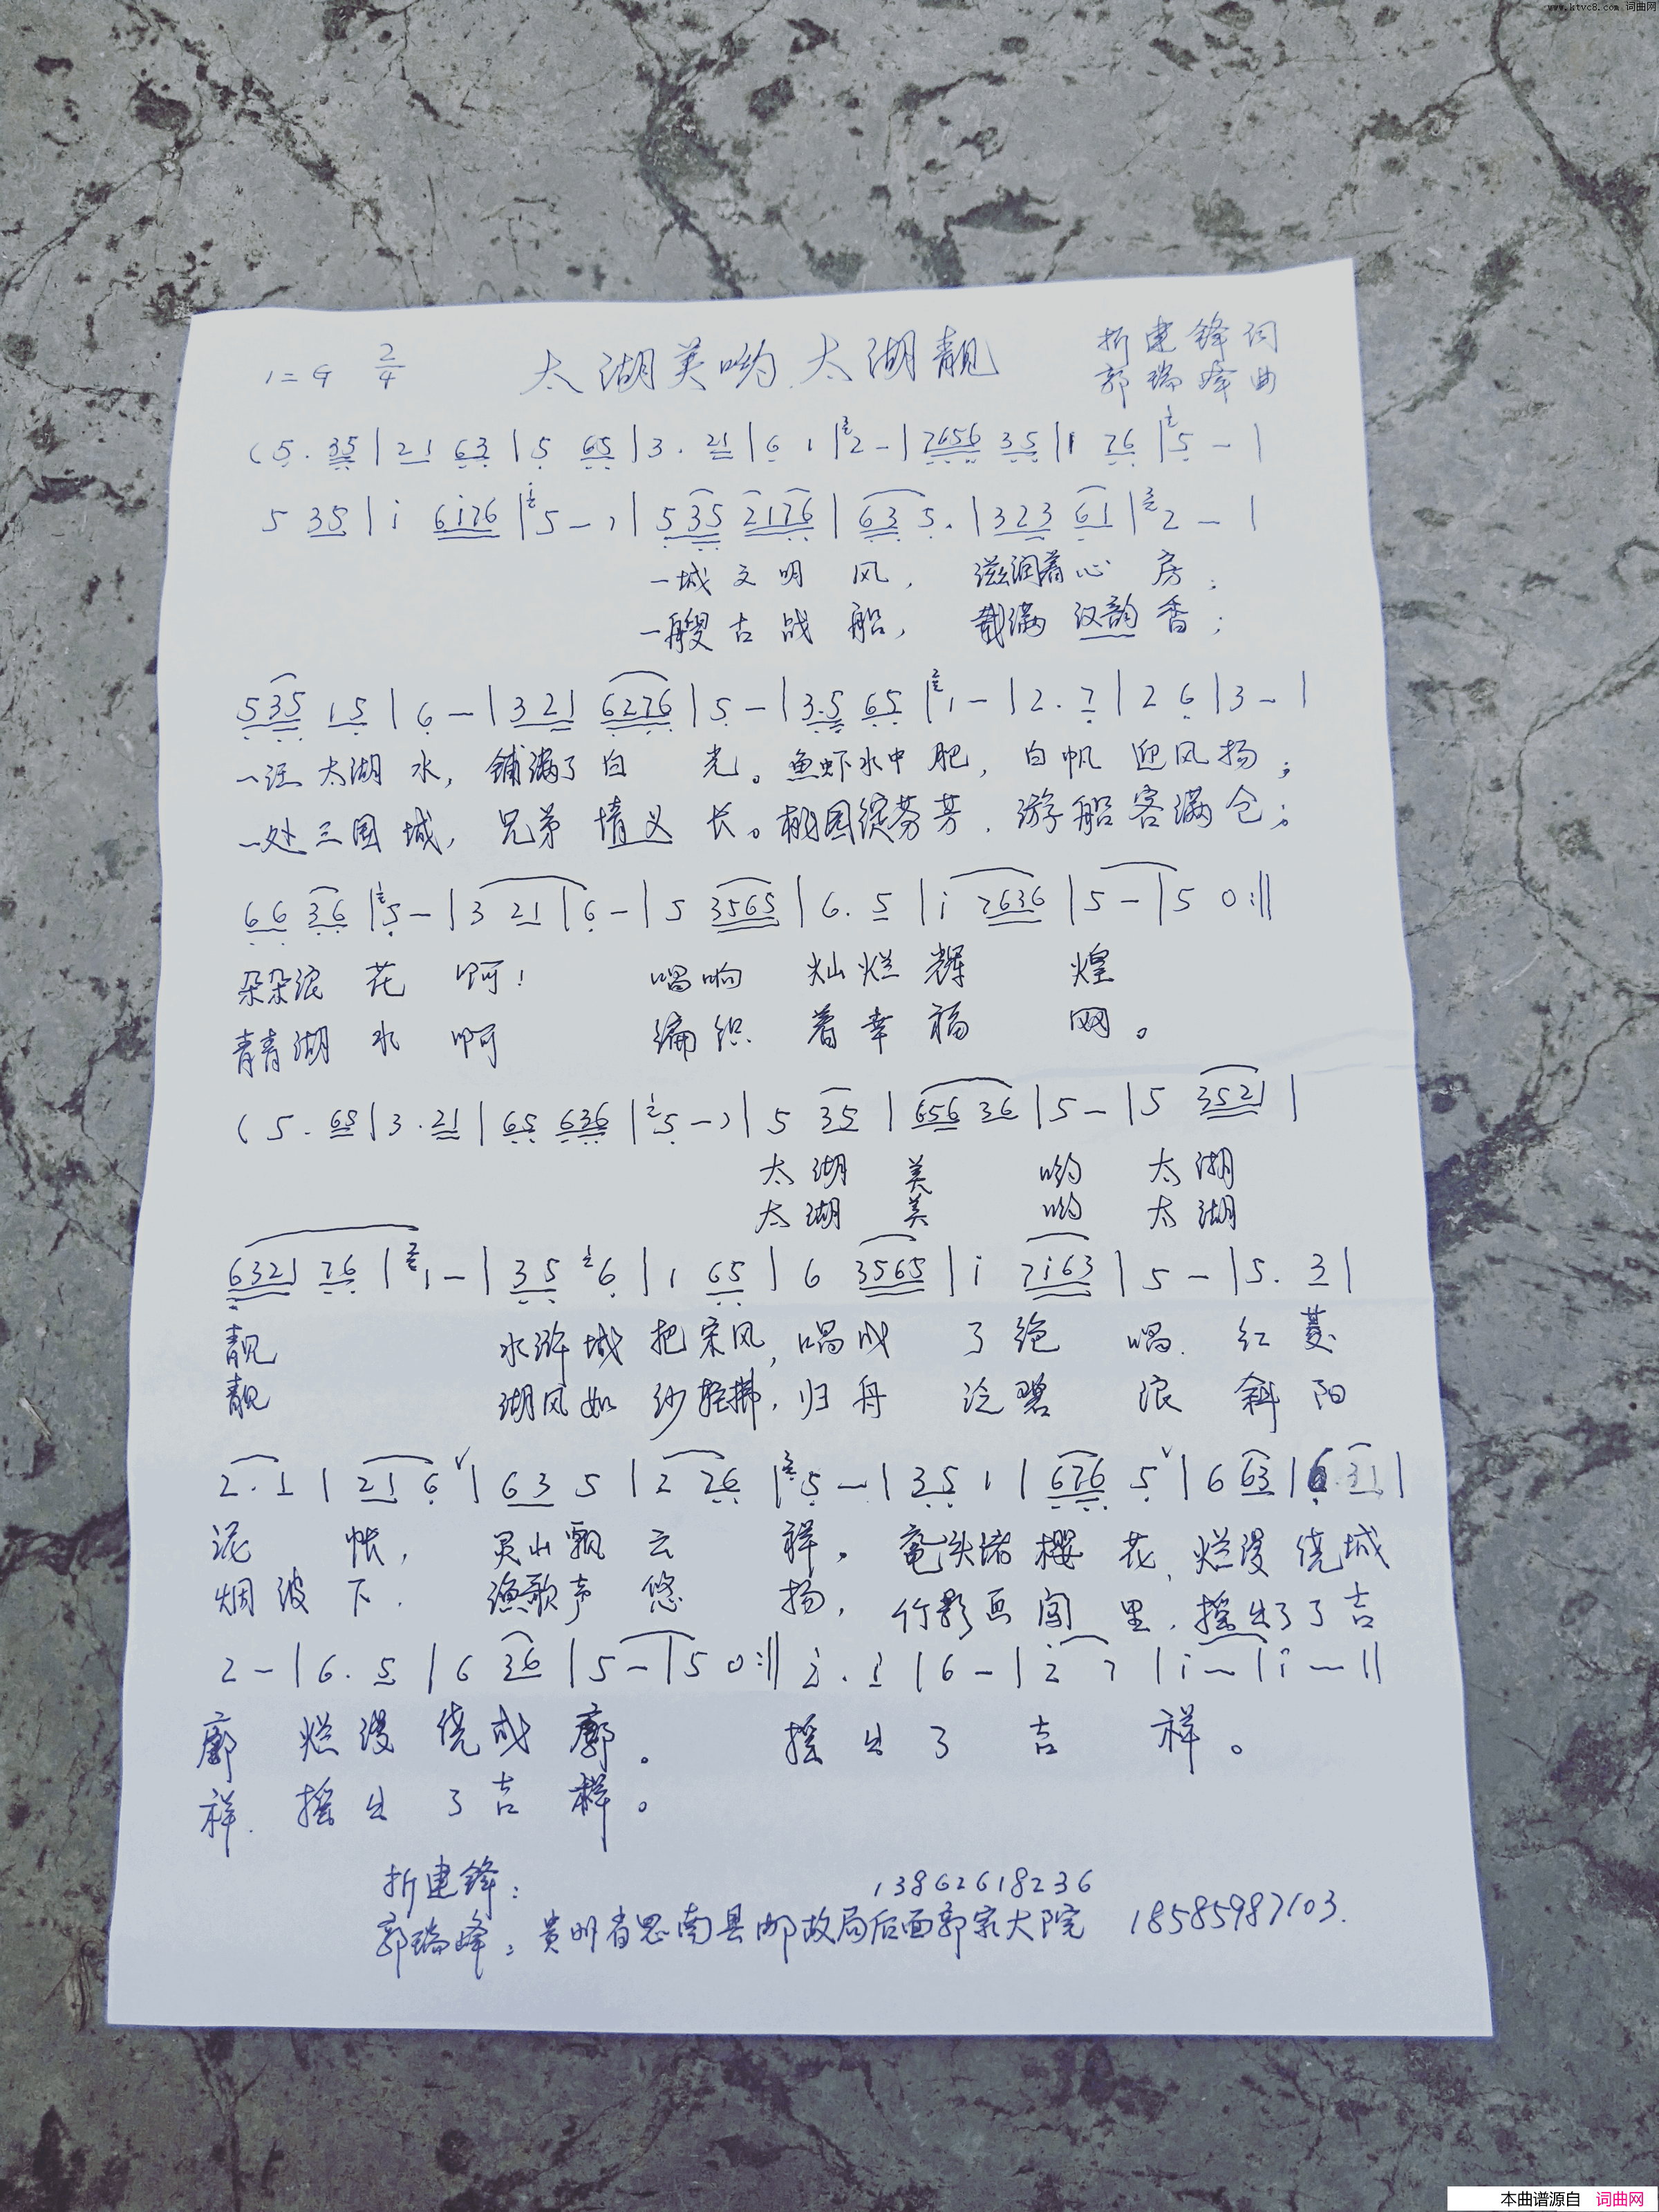 www.ktvc8.com 词曲网
1=G 2/4 太湖美哟太湖靓 折建锋词
郭瑞峰曲
(5. 35|21 63|5 65|3. 21|6 1|2-|7656 35|1 76|5-|
5 35|i 6i76|5-)|535 2176|63 5.|323 61|2-|
一城文明风,滋润着心房;
一艘古战船,载满汉韵香;
535 15|6-|321 6276|5-|3.5 65|1-|2.7|2 6|3-|
一汪太湖水,铺满了白光。鱼虾水中肥,白帆迎风扬;
一处三国城,兄弟情义长。桃园绽芬芳,游船客满仓;
66 36|5-|3 21|6-|5 3565|6. 5|i 7636|5-|5 0:||
朵朵浪花啊!唱响灿烂辉煌
青青湖水啊 编织着幸福网。
(5. 65|3. 21|65 636|5-)|5 35|656 36|5-|5 3521|
太湖美哟太湖
太湖美哟太湖
6321 76|1-|35 6|1 65|6 3565|i 7i63|5-|5. 3|
靓 水浒城把宋风,唱成了绝唱.红菱
靓 湖风如纱轻拂,归舟泛碧浪 斜阳
2. 1|21 6|63 5|2 76|5-|35 1|676 5|6 63|6. 31|
泥帐,灵山飘云祥。鼋头渚樱花,烂漫绕城
烟波下.渔歌声悠扬,竹影画阁里,摇出了吉
2-|6. 5|6 36|5-|5 0:||2. i|6-|2 7|i-|i-||
廓 烂漫绕城廓。 摇出了吉祥。
祥.摇出了吉祥。
折建锋: 13862618236
郭瑞峰:贵州省思南县邮政局后面郭家大院 18585987103.
本曲谱源自 词曲网